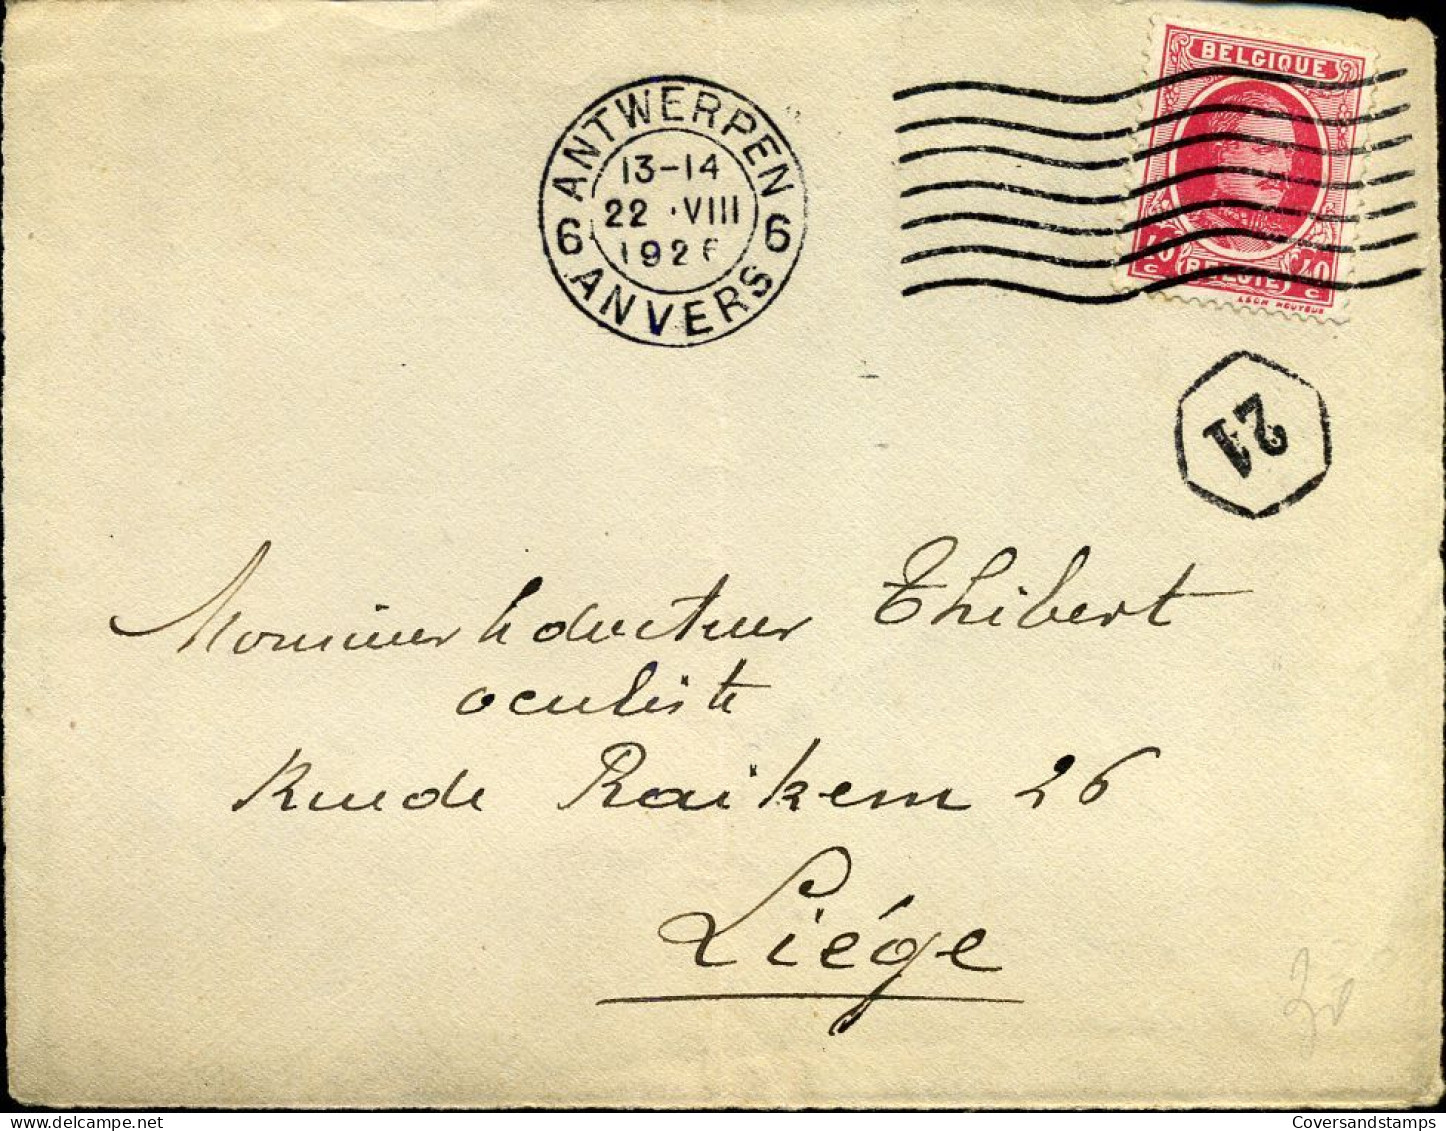 BELGIQUE
40 C 40 C
BELGIË
LEON HOUYOUX
ANTWERPEN
13-14
22 ·VIII
1926
6 6
ANVERS
21
Monsieur le docteur Thibert
oculiste
Rue de Raikem 26
Liége
Coversandstamps